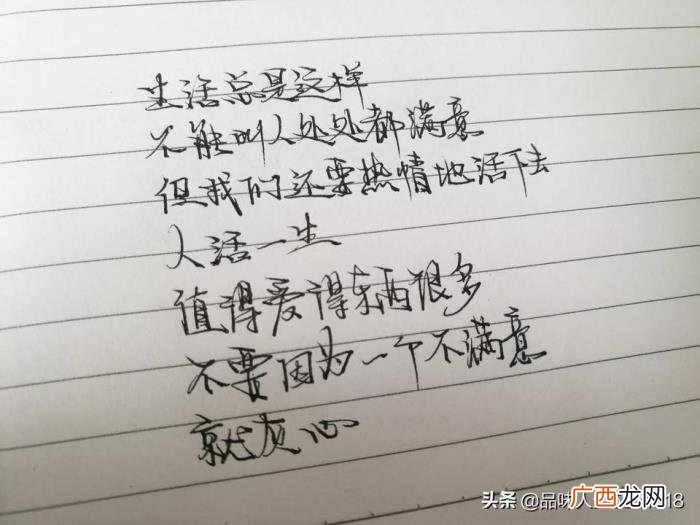 生活总是这样
不能叫人处处都满意
但我们还要热情地活下去
人活一生
值得爱得东西很多
不要因为一个不满意
就灰心
头条 @品味人
广西龙网
18